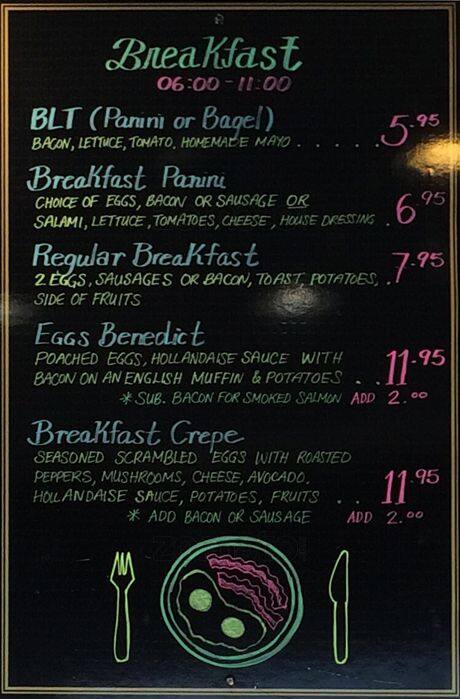 Breakfast
06:00 - 11:00
BLT (Panini or Bagel)
BACON, LETTUCE, TOMATO, HOMEMADE MAYO . . . . . 5.95
Breakfast Panini
CHOICE OF EGGS, BACON OR SAUSAGE OR
SALAMI, LETTUCE, TOMATOES, CHEESE, HOUSE DRESSING . 6.95
Regular Breakfast
2 EGGS, SAUSAGES OR BACON, TOAST, POTATOES, . 7.95
SIDE OF FRUITS
Eggs Benedict
POACHED EGGS, HOLLANDAISE SAUCE WITH
BACON ON AN ENGLISH MUFFIN & POTATOES . . 11.95
* SUB. BACON FOR SMOKED SALMON ADD 2.00
Breakfast Crepe
SEASONED SCRAMBLED EGGS WITH ROASTED
PEPPERS, MUSHROOMS, CHEESE, AVOCADO,
HOLLANDAISE SAUCE, POTATOES, FRUITS . . 11.95
* ADD BACON OR SAUSAGE ADD 2.00